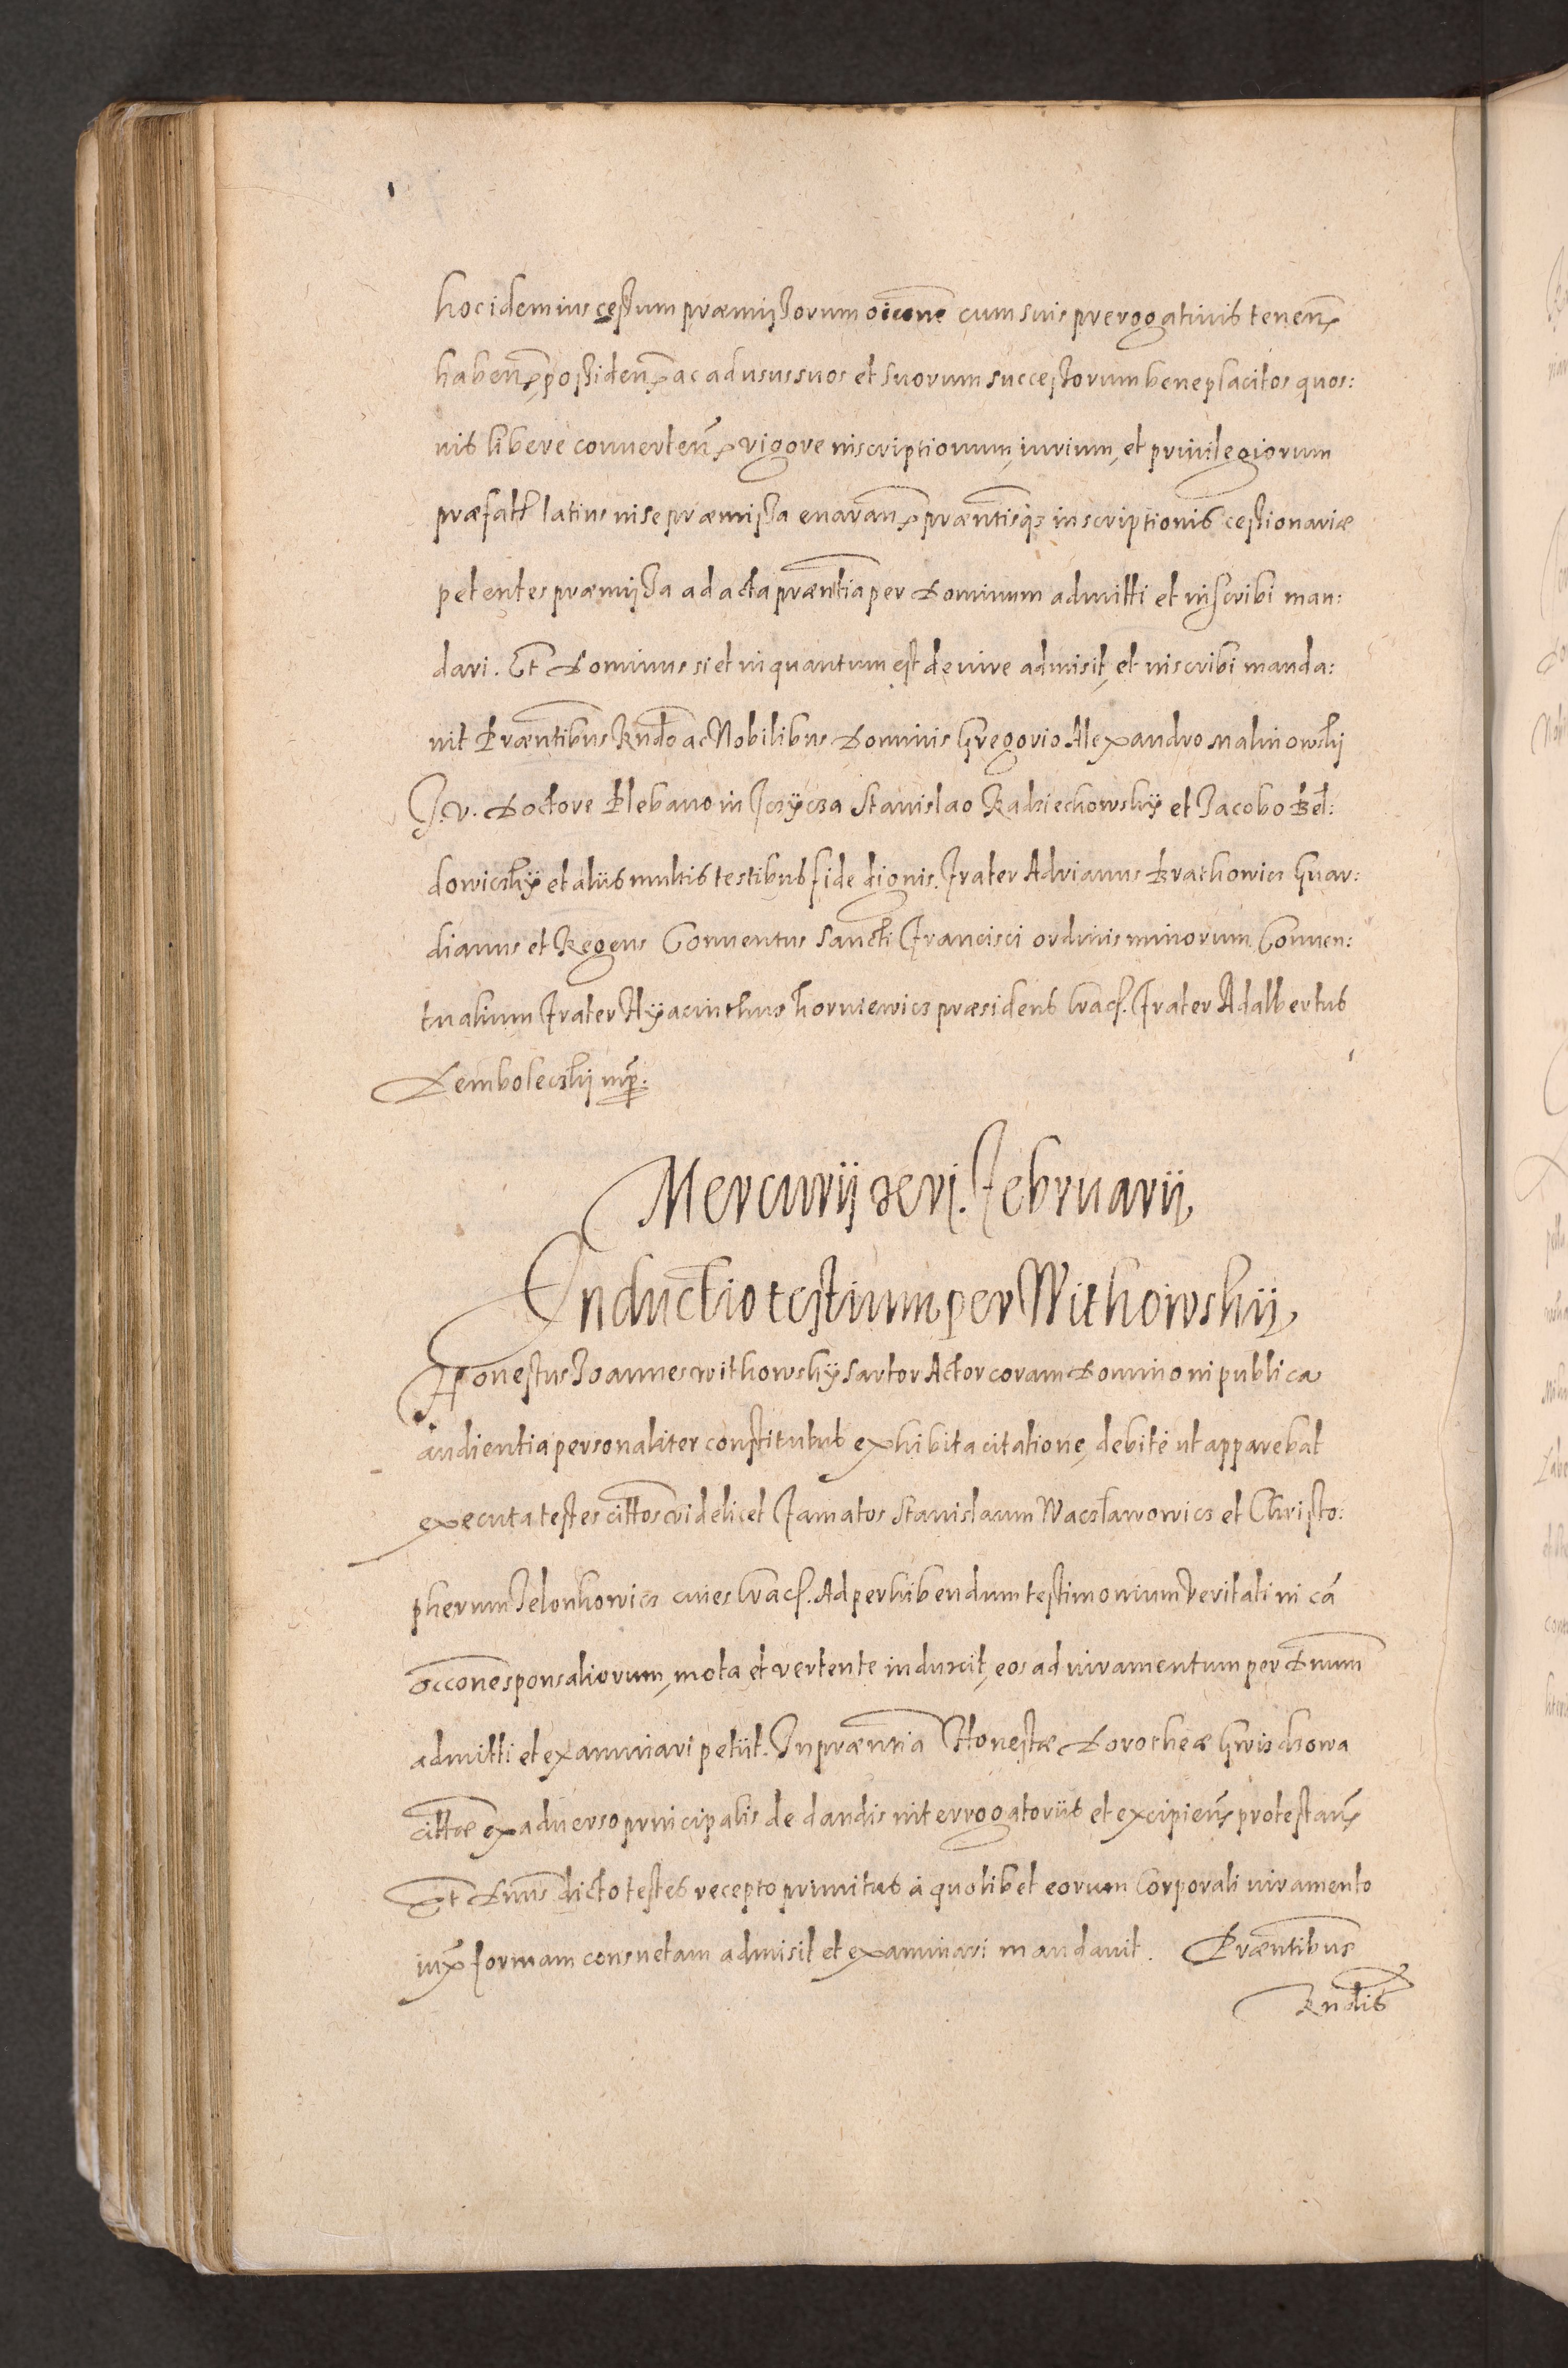 hoc idem ius cessum præmissorum oicione cum suis prerogativis tenen̄
haben̄ possiden̄ ac ad usus suos et suorum successorum beneplacitos quos:
vis libere converten̄ vigore inscriptionum, iurium, et privilegiorum
præfatt latius in se præmissa enarran̄ præntisq̃ inscriptionis cessionariæ
petentes præmissa ad acta præntia per Dominum admitti et inscribi man:
dari. Et Dominus si et in quantum est de iure admisit, et inscribi manda:
vit Præntibus Rndo ac Nobilibus Dominis Gregorio Alexandro Malinowskj
J. V. Doctore Plebano in Stanislao Radziechowskÿ et Jacobo Bel:
dowiczkÿ et aliis multis testibus fide dignis. Frater Adrianus Brathowicz Guar:
dianus et Regens Conventus Sancti Francisci ordinis minorum Conven:
tualium Frater Hyacinthus Thorniewicz præsidens Crac. Frater Adalbertus
Demboleczkj mp.
Mercurij xxvj. Februarij,
Inductio testium per Withowskij,
Honestus Joannes Withowskÿ Sartor Actor coram Domino in publica
audientia personaliter constitutus exhibita citatione, debite ut apparebat
executa testes cittos videlicet Famatos Stanislaum Waczlawowicz et Christo:
pherum Jelonkowicz cives Crac. Ad perhibendum testimonium Veritati in cā
occone sponsaliorum, mota et vertente induxit, eos ad iuramentum per Dnum
admitti et examinari petiit. In præntia Honestæ Dorotheæ Gwizdzowa
cittæ ex adverso principalis de dandis interrogatoriis et excipien̄ protestan̄
Et Dnus dicto testes recepto primitus à quolibet eorum Corporali iuramento
iux̄ formam consuetam admisit et examinari mandavit. Præntibus
Rndis